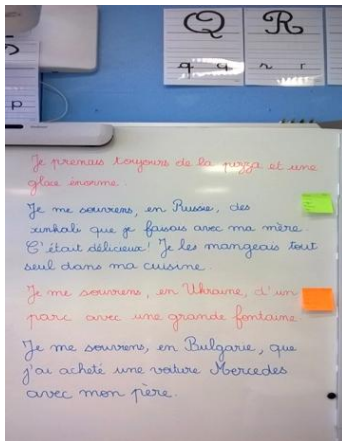 Q R
p q q r r
Je prenais toujours de la pizza et une
glace énorme.
Je me souviens, en Russie, des
xinkali que je faisais avec ma mère.
C'était délicieux! Je les mangeais tout
seul dans ma cuisine.
Je me souviens, en Ukraine, d'un
parc avec une grande fontaine
Je me souviens, en Bulgarie, que
j'ai acheté une voiture Mercedes
avec mon père.